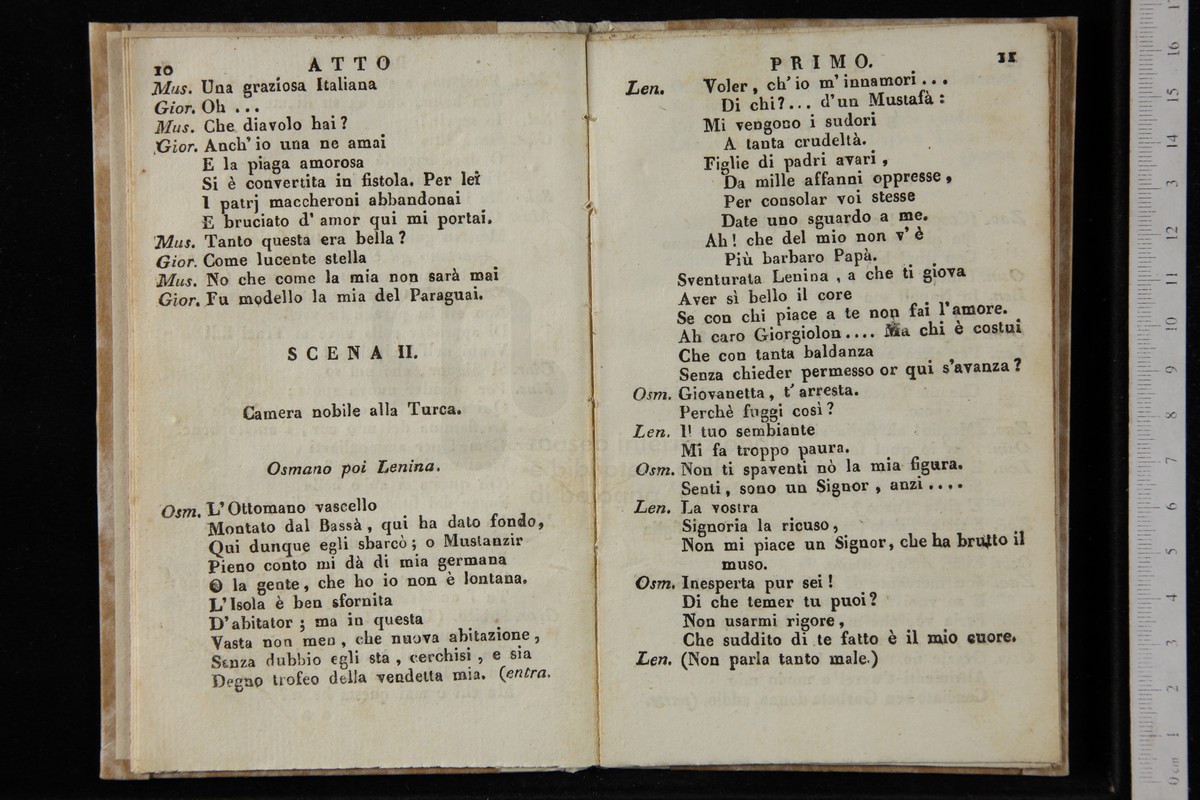 10 ATTO
Mus. Una graziosa Italiana
Gior. Oh ...
Mus. Che diavolo hai?
Gior. Anch' io una ne amai
E la piaga amorosa
Si è convertita in fistola. Per lei
I patrj maccheroni abbandonai
E bruciato d' amor qui mi portai.
Mus. Tanto questa era bella?
Gior. Come lucente stella
Mus. No che come la mia non sarà mai
Gior. Fu modello la mia del Paraguai.
SCENA II.
Camera nobile alla Turca.
Osmano poi Lenina.
Osm. L'Ottomano vascello
Montato dal Bassà, qui ha dato fondo,
Qui dunque egli sbarcò; o Mustanzir
Pieno conto mi dà di mia germana
O la gente, che ho io non è lontana.
L'Isola è ben sfornita
D'abitator; ma in questa
Vasta non men, che nuova abitazione,
Senza dubbio egli sta, cerchisi, e sia
Degno trofeo della vendetta mia. (entra.
PRIMO. 11
Len. Voler, ch' io m' innamori ...
Di chi?... d'un Mustafà:
Mi vengono i sudori
A tanta crudeltà.
Figlie di padri avari,
Da mille affanni oppresse,
Per consolar voi stesse
Date uno sguardo a me.
Ah! che del mio non v' è
Più barbaro Papà.
Sventurata Lenina, a che ti giova
Aver sì bello il core
Se con chi piace a te non fai l'amore.
Ah caro Giorgiolon.... Ma chi è costui
Che con tanta baldanza
Senza chieder permesso or qui s'avanza?
Osm. Giovanetta, t' arresta.
Perchè fuggi così?
Len. Il tuo sembiante
Mi fa troppo paura.
Osm. Non ti spaventi nò la mia figura.
Senti, sono un Signor, anzi ....
Len. La vostra
Signoria la ricuso,
Non mi piace un Signor, che ha brutto il
muso.
Osm. Inesperta pur sei!
Di che temer tu puoi?
Non usarmi rigore,
Che suddito di te fatto è il mio cuore.
Len. (Non parla tanto male.)
0 cm 1 2 3 4 5 6 7 8 9 10 11 12 13 14 15 16